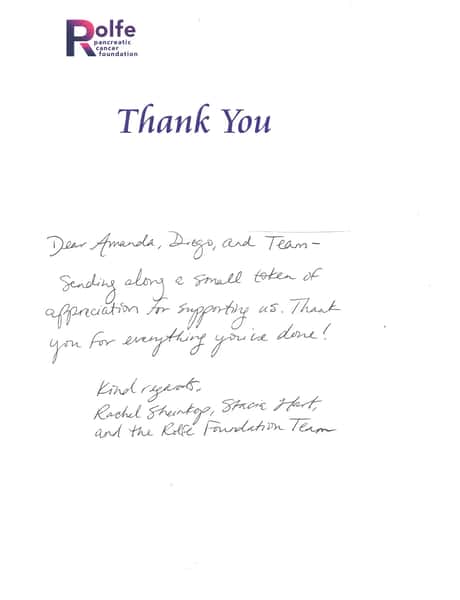 Rolfe
pancreatic
cancer
foundation
Thank You
Dear Amanda, Diego, and Team-
Sending along a small token of
appreciation for supporting us. Thank
you for everything you've done!
Kind regards,
Rachel Sheinkop, Stacie Hart,
and the Rolfe Foundation Team